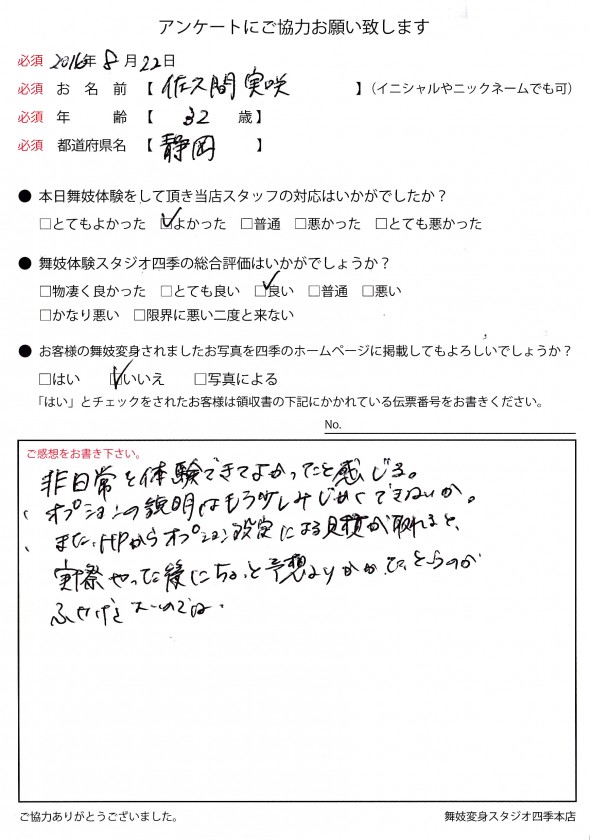 アンケートにご協力お願い致します
必須 2016年 8月 22日
必須 お名前【 佐久間 実咲 】(イニシャルやニックネームでも可)
必須 年齢【 32 歳】
必須 都道府県名【 静岡 】
● 本日舞妓体験をして頂き当店スタッフの対応はいかがでしたか?
□とてもよかった □よかった □普通 □悪かった □とても悪かった
● 舞妓体験スタジオ四季の総合評価はいかがでしょうか?
□物凄く良かった □とても良い □良い □普通 □悪い
□かなり悪い □限界に悪い二度と来ない
● お客様の舞妓変身されましたお写真を四季のホームページに掲載してもよろしいでしょうか?
□はい □いいえ □写真による
「はい」とチェックをされたお客様は領収書の下記にかかれている伝票番号をお書きください。
No.
ご感想をお書き下さい。
非日常を体験できてよかったと感じる。
オプションの説明はもう少しみじかくできないか。
また、HPからオプション設定による見積が取れると、
実際やった後にちょっと予想より
ご協力ありがとうございました。
舞妓変身スタジオ四季本店